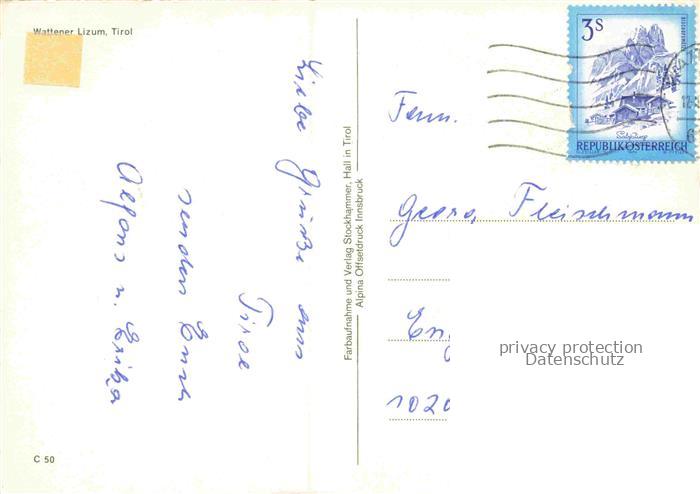 Wattener Lizum, Tirol
Liebe Grüße aus
Tirol
senden Euch
Alfons u. Erika
C 50
Farbaufnahme und Verlag Stockhammer, Hall in Tirol
Alpina Offsetdruck Innsbruck
3S
REPUBLIK ÖSTERREICH
Fam.
Georg Fleischmann
En
1020
privacy protection
Datenschutz